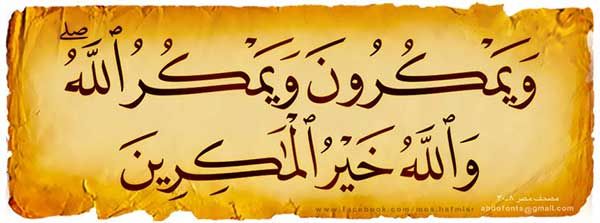 وَيَمْكُرُونَ وَيَمْكُرُ ٱللَّهُ ۖ
وَٱللَّهُ خَيْرُ ٱلْمَـٰكِرِينَ
مصحف مصر ٢٠٠٨
www.facebook.com/mos.hafmisr abdofonts@gmail.com